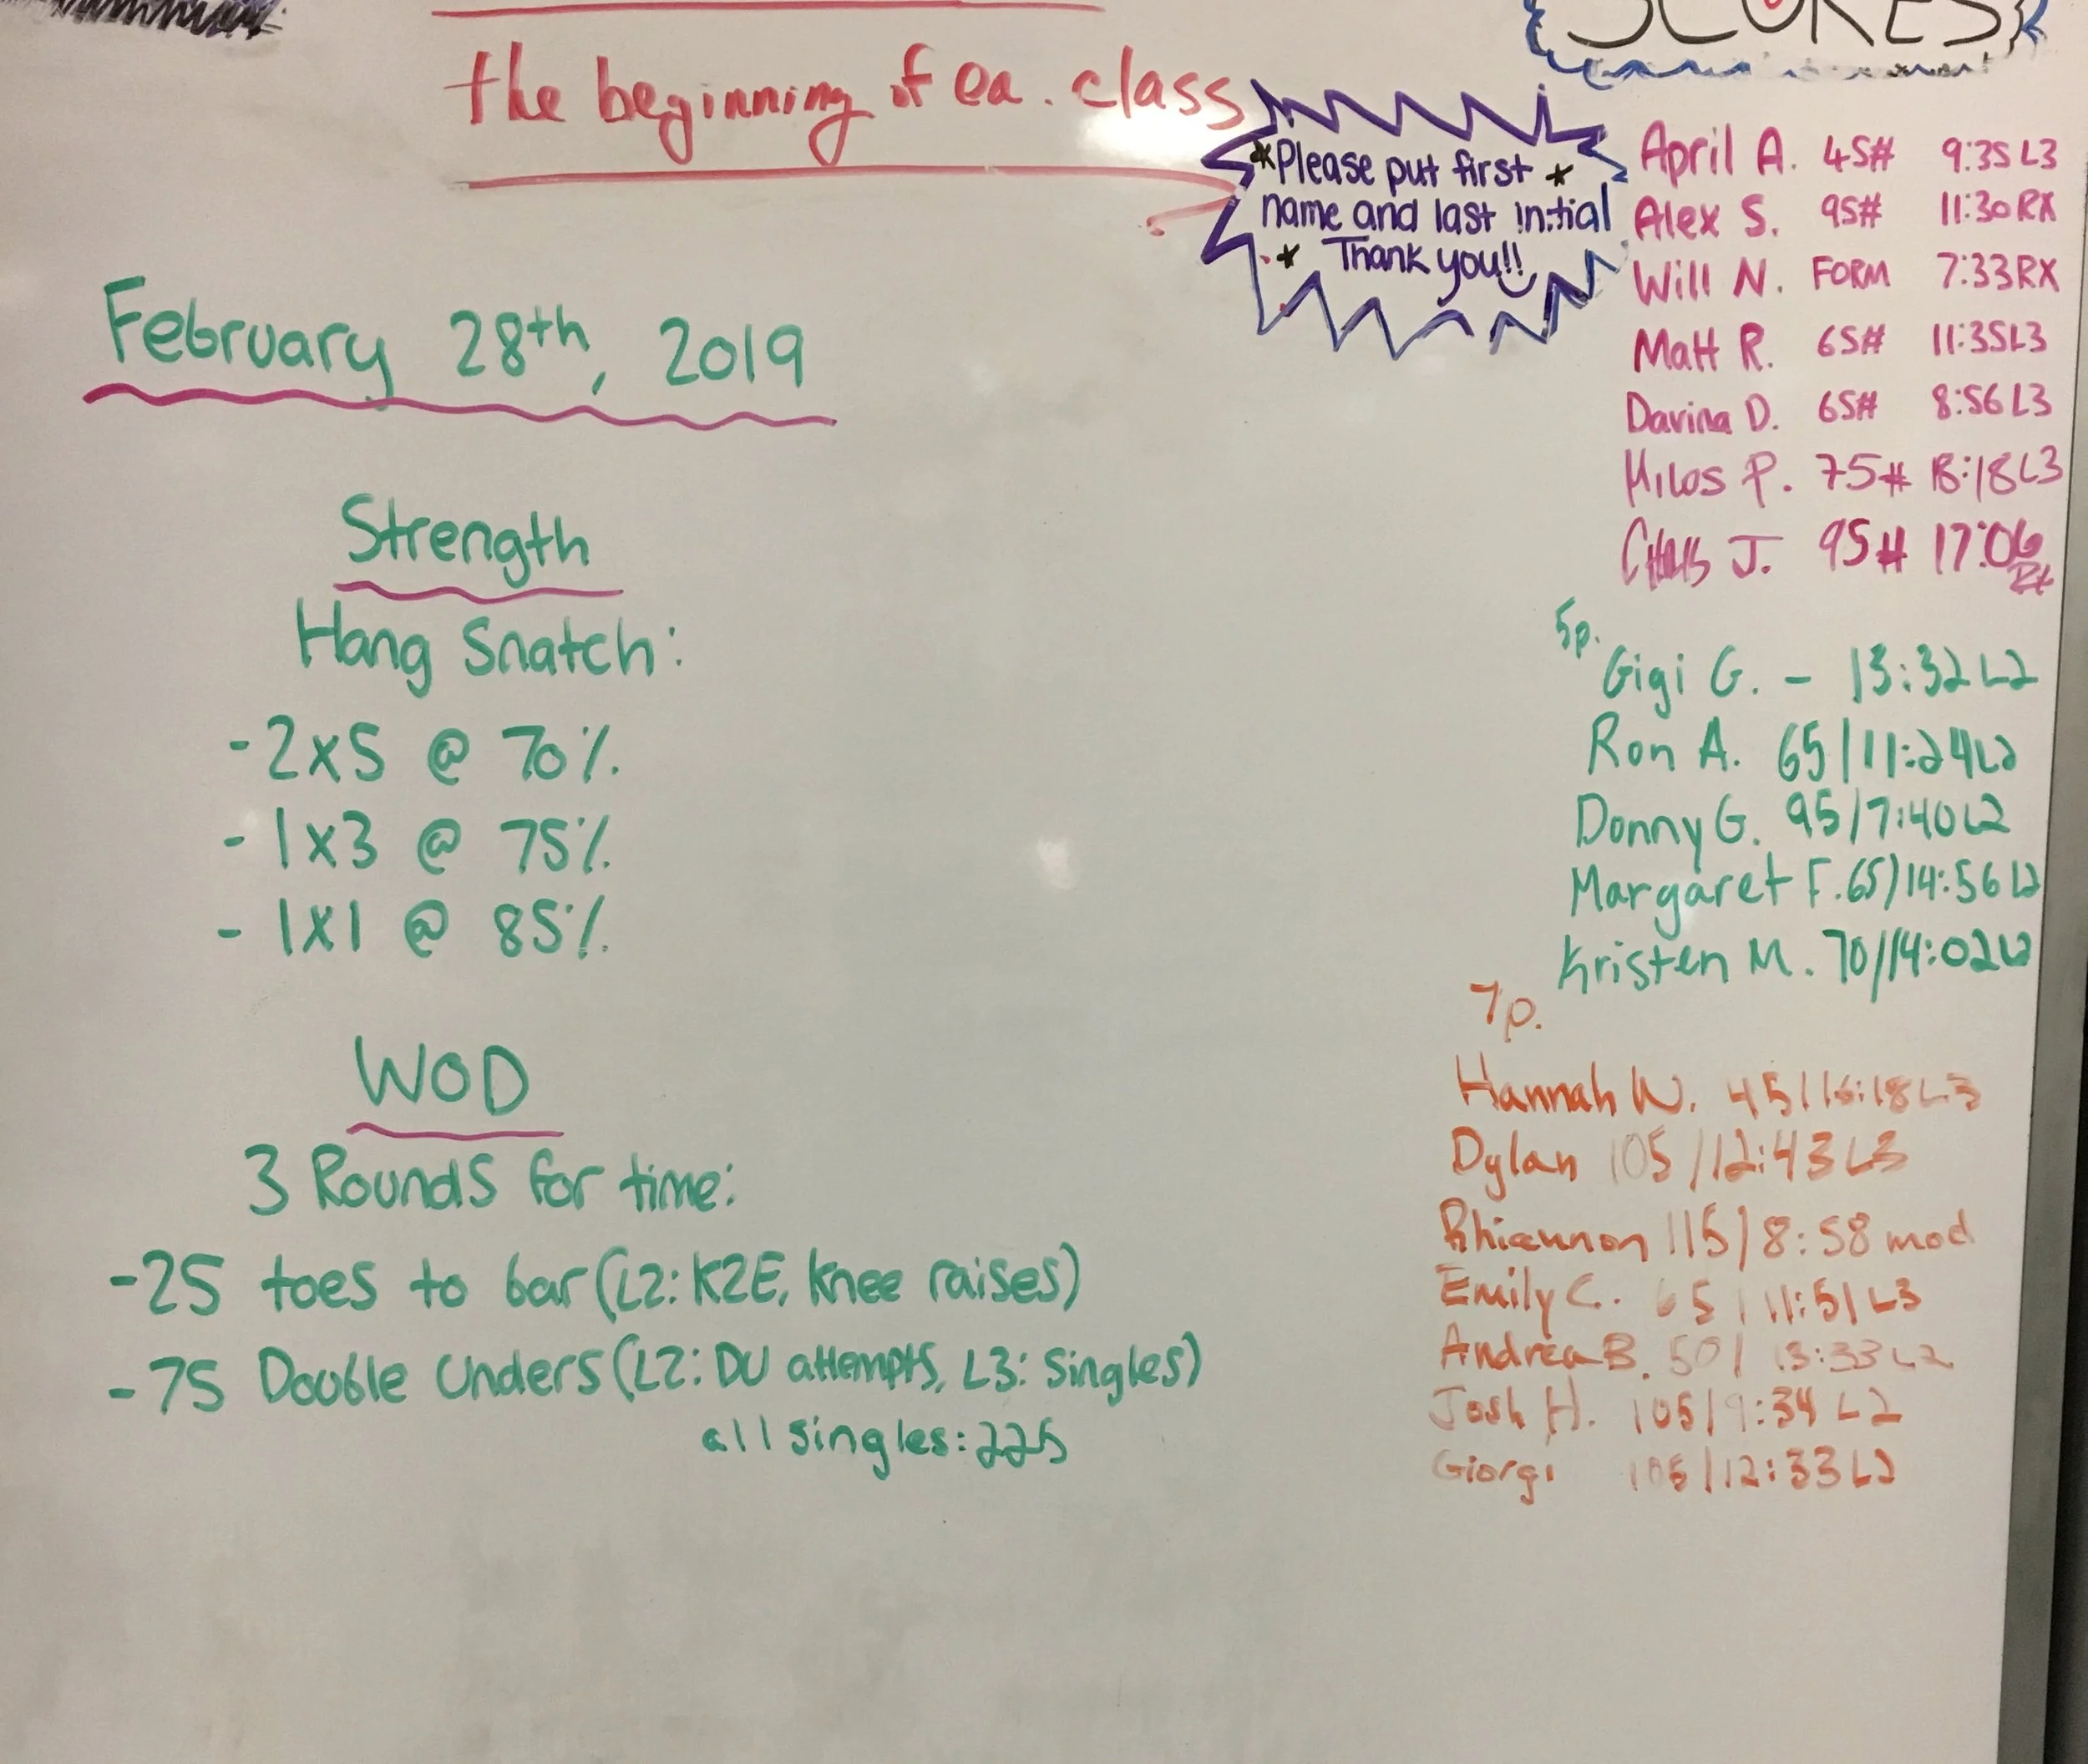 the beginning of ea. class
SCORES
*Please put first *
name and last initial
* Thank you!!
February 28th, 2019
Strength
Hang Snatch:
-2x5 @ 70%
-1x3 @ 75%
-1x1 @ 85%
WOD
3 Rounds for time:
-25 toes to bar (L2: K2E, knee raises)
-75 Double Unders (L2: DU attempts, L3: Singles)
all singles: 225
April A. 45# 9:35 L3
Alex S. 95# 11:30 RX
Will N. FORM 7:33 RX
Matt R. 65# 11:35 L3
Davina D. 65# 8:56 L3
Milos P. 75# 18:18 L3
J. 95# 17:06 Rx
5p.
Gigi G. - 13:32 L2
Ron A. 65/11:24 L2
Donny G. 95/7:40 L2
Margaret F. 65/14:56 L2
Kristen M. 70/14:02 L2
7p.
Hannah W. 45/16:18 L3
Dylan 105/12:43 L3
Rhiannon 115/8:58 mod
Emily C. 65/11:51 L3
Andrea B. 50/13:33 L2
Josh H. 105/9:34 L2
Giorgi 105/12:33 L2